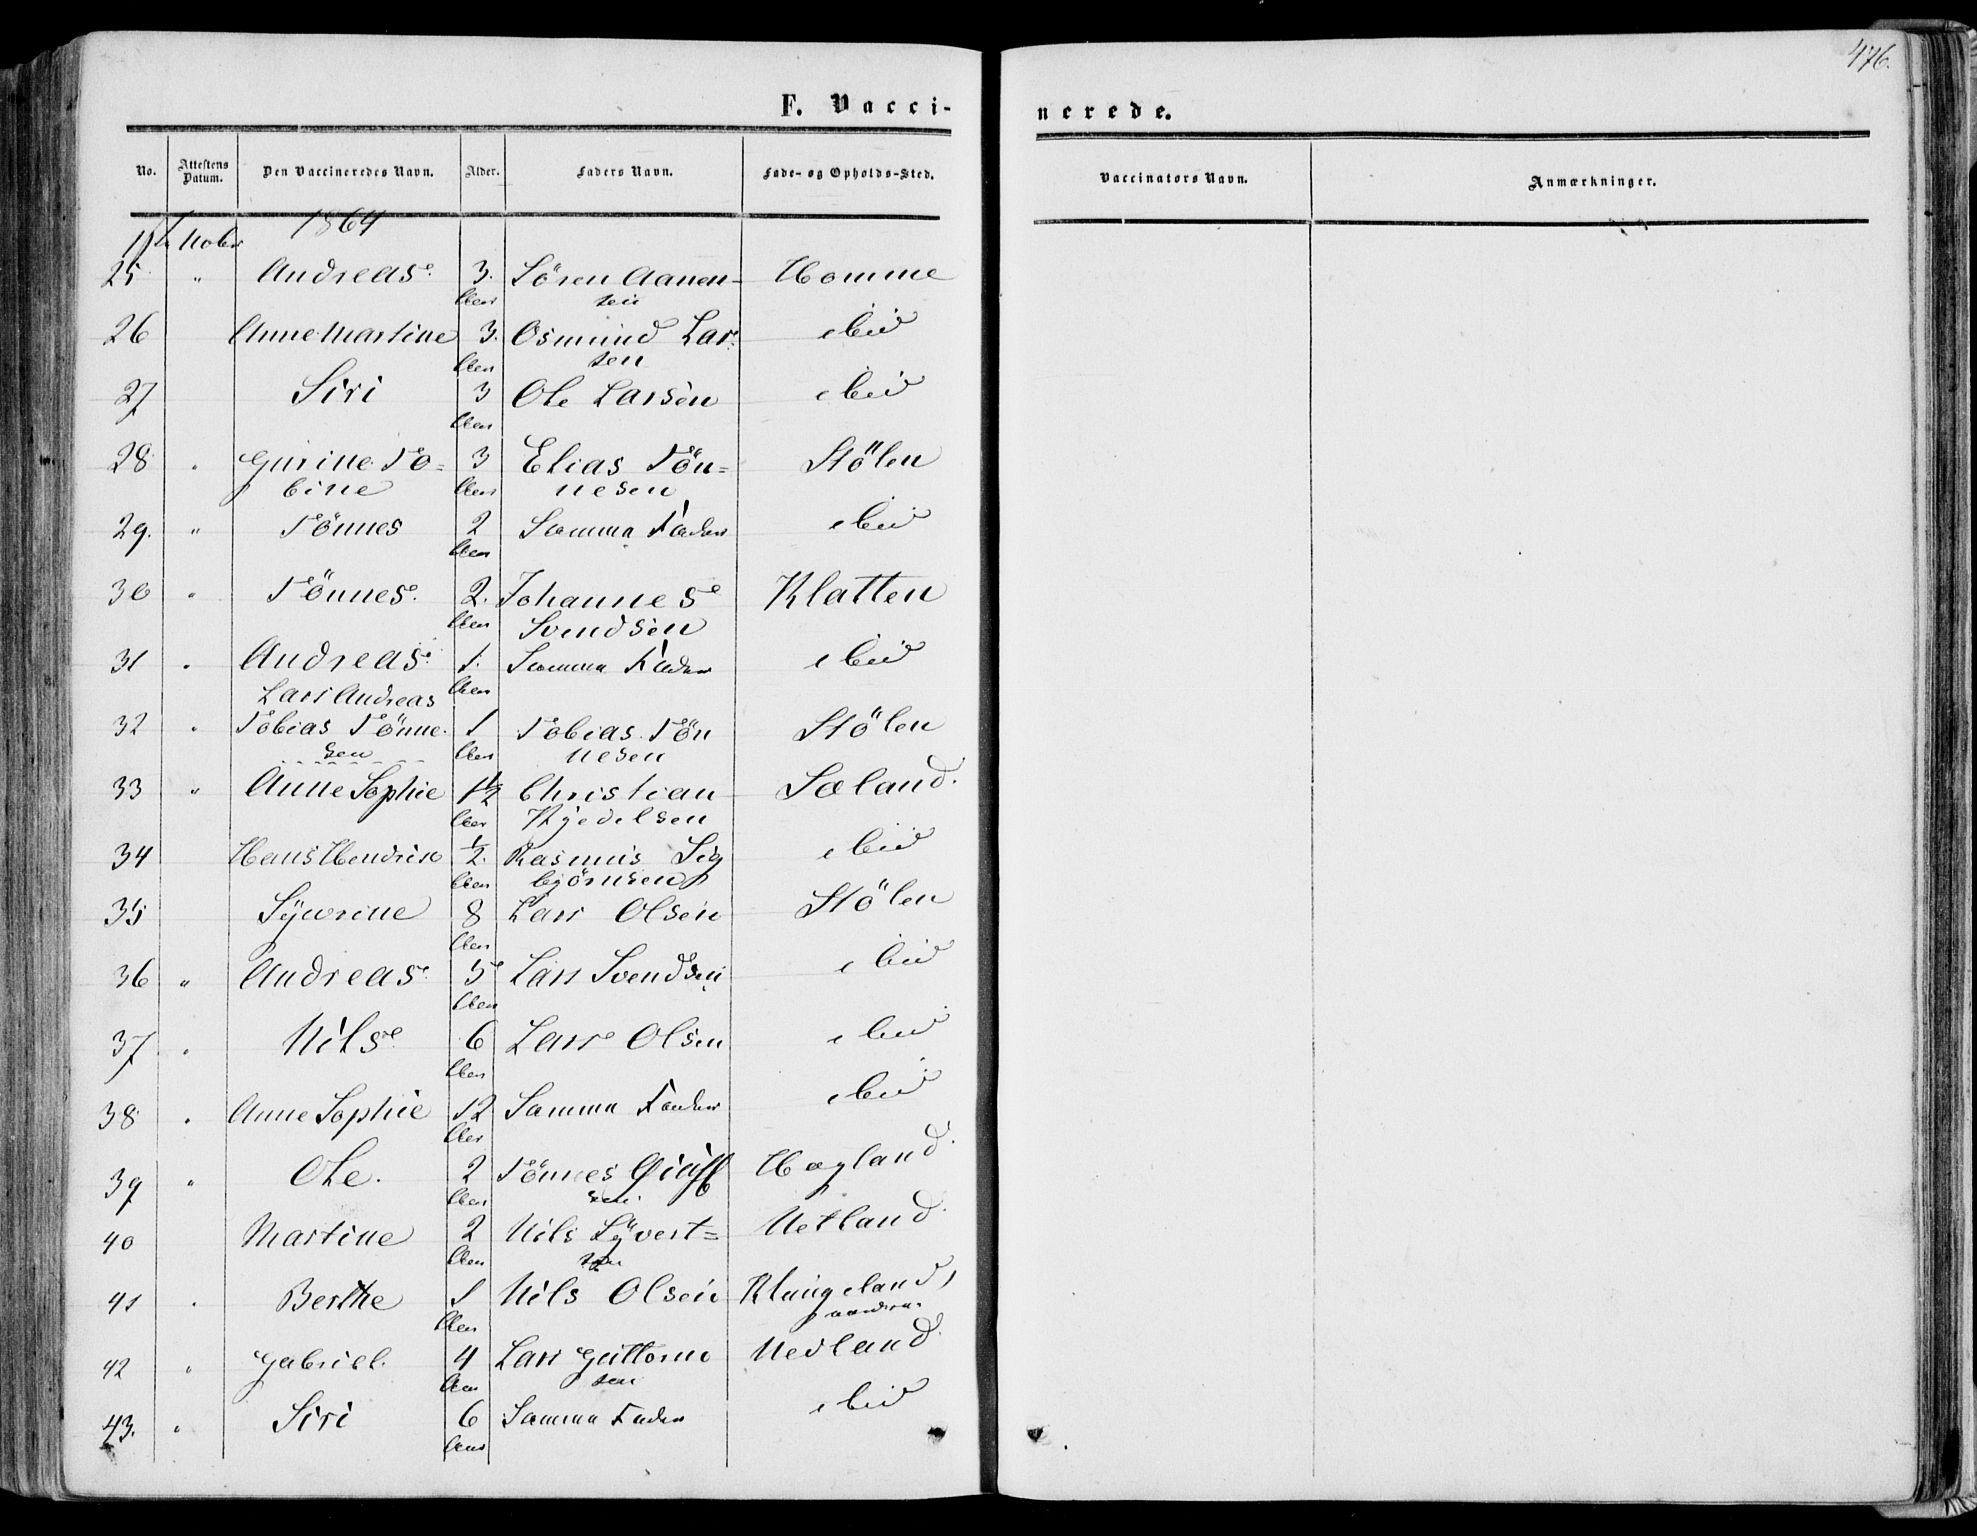 476.
F. Vaccinerede.
No. Attestens Datum. Den Vaccineredes Navn. Alder. Faders Navn. Føde- og Opholds-Sted. Vaccinators Navn. Anmærkninger.
Nobr 1864
25 " Andreas 3 Sören Aanen- Homme
Aar sen
26 Anne Martine 3 Osmund Lar- ibid
Aar sen
27 Siri 3 Ole Larsen ibid
Aar
28 " Gurine To= 3 Elias Tön= Stölen
bine Aar nesen
29. " Tönnes 2 Samma Fader ibid
Aar
30 " Tönnes 2. Johannes Klatten
Aar Svendsen
31 " Andreas 1. Samma Fader ibid
Lars Andreas Aar
32 " Tobias Tönne- 1 Tobias Tön Stölen
sen Aar nesen
33 " Anne Sophie 1½ Christian Sæland.
Aar Kjedelsen
34 Hans Hendrik ½. Rasmus Sig ibid
Aar björnsen
35 Syvrine 8 Lars Olsen Stölen
Aar
36 " Andreas 5 Lars Svendsen ibid
Aar
37 " Nils 6 Lars Olsen ibid
Aar
38 " Anne Sophie 12 Samma Fader ibid
Aar
39 " Ole. 2 Tönnes Hægland.
Aar sen
40 Martine 2 Nils Syvert= Netland.
Aar sen
41 " Berthe 1 Nils Olsen Klungeland,
Aar
42 " Gabriel. 4 Lars Guttorm Nedland.
Aar sen
43. " Siri 6 Samma Fader ibid
Aar